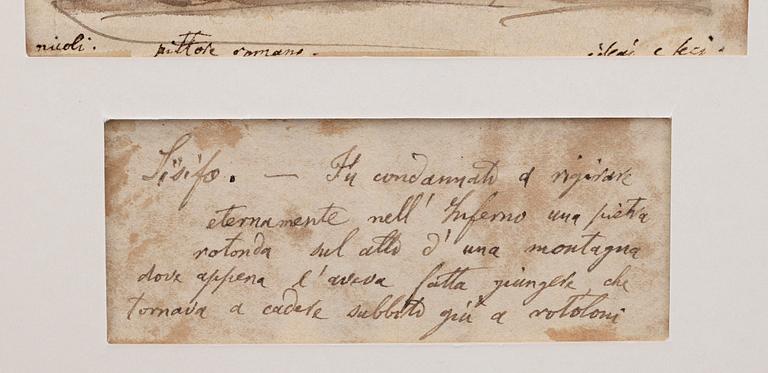 nicoli. pittore romano. ideai e feci.
Sisifo. — Fu condannato a rigirare
eternamente nell' Inferno una pietra
rotonda sul alto d' una montagna
dove appena l' aveva fatta giungere, che
tornava a cadere subbito giù a rotoloni